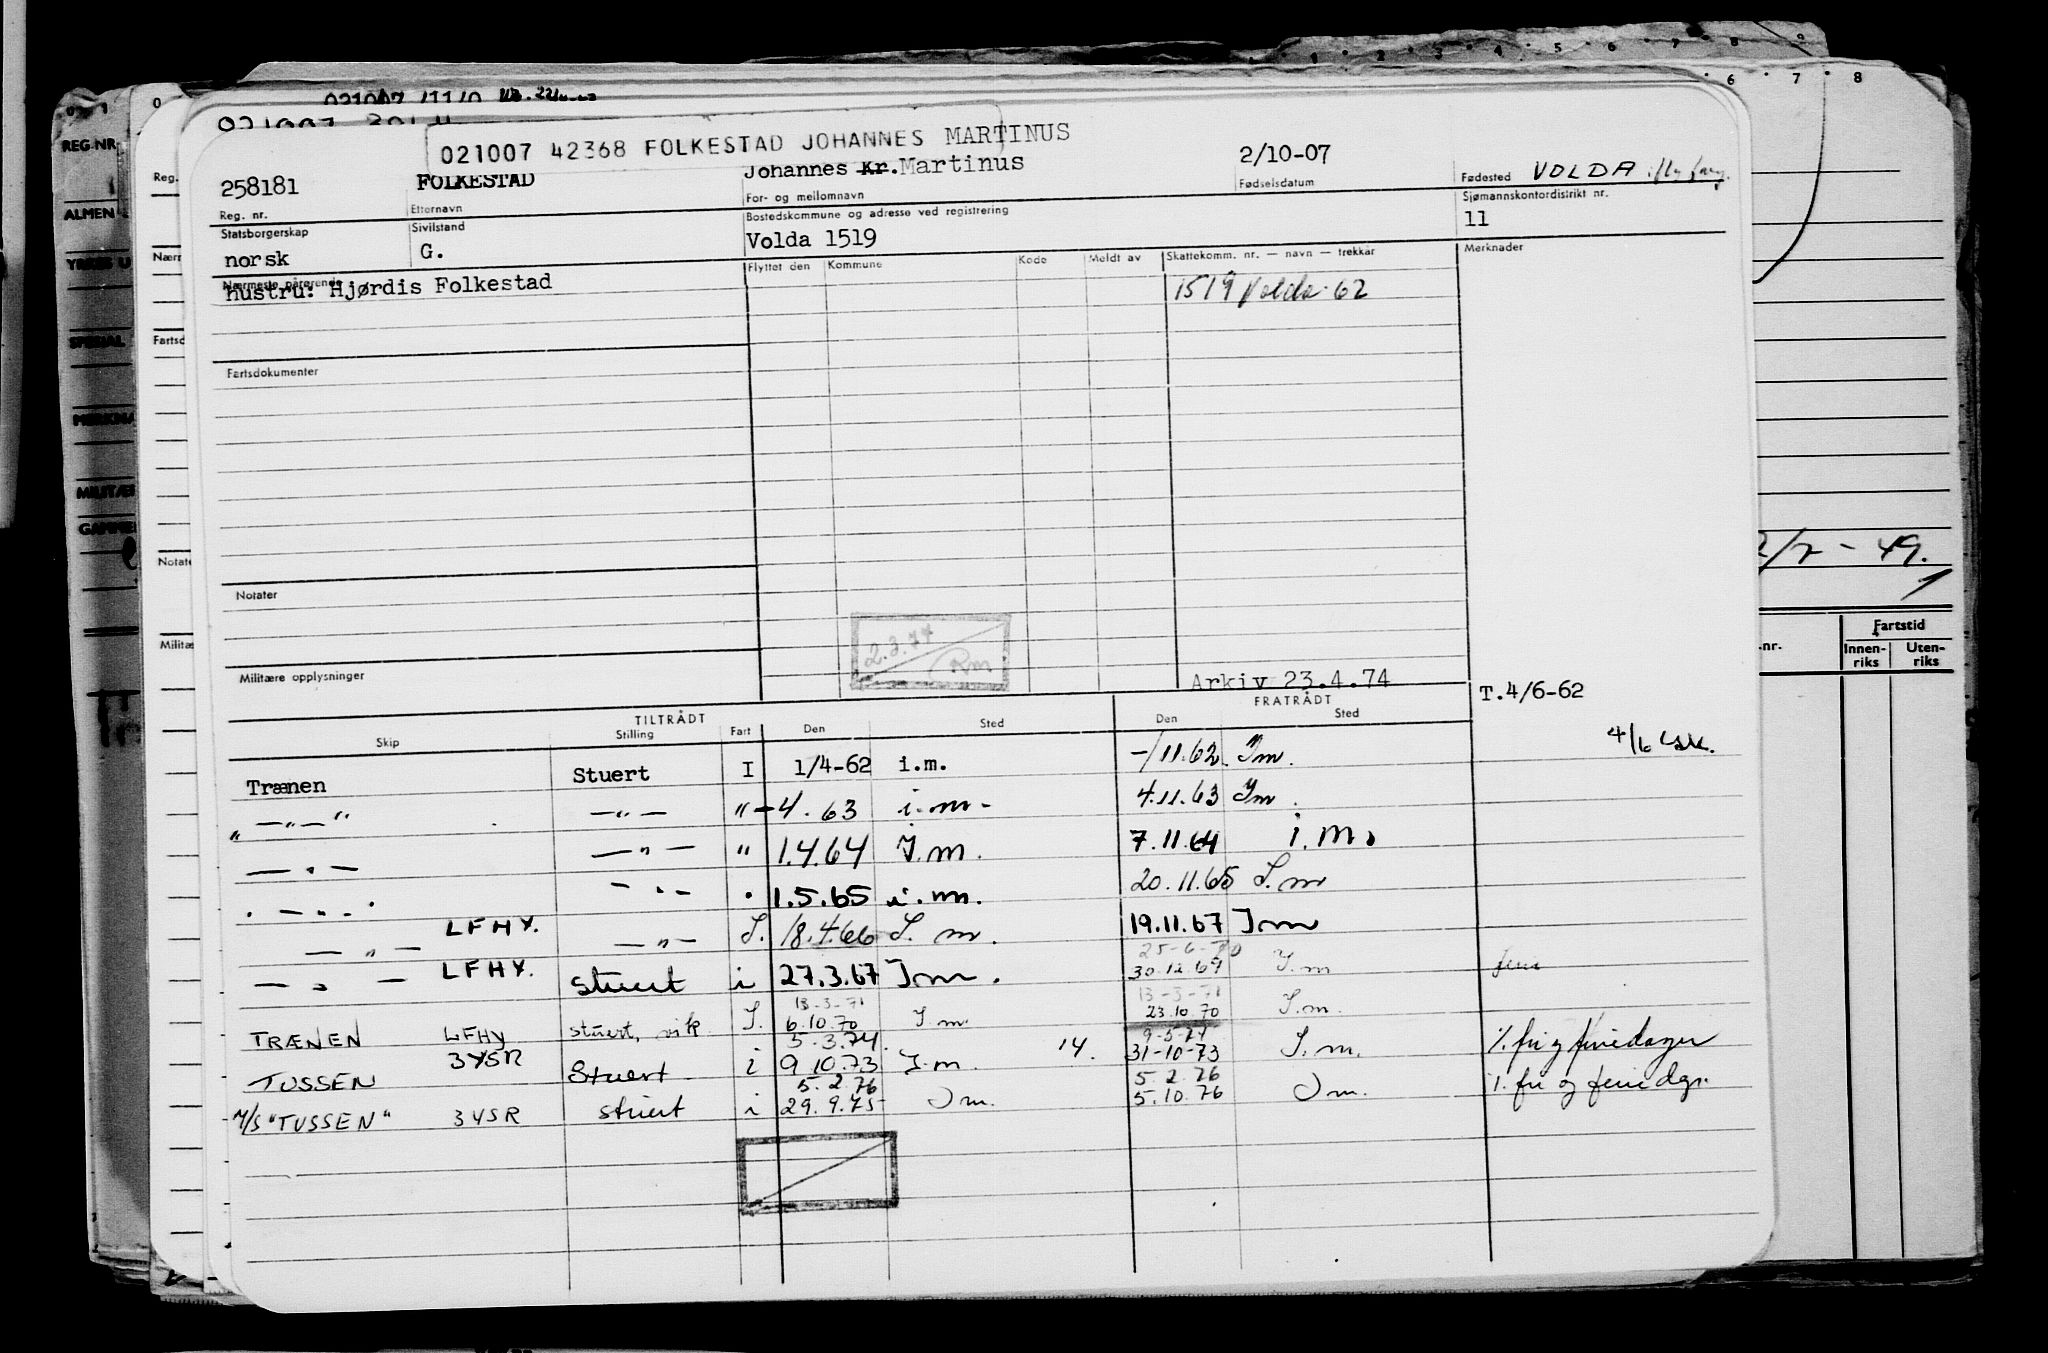 021007 42368 FOLKESTAD JOHANNES MARTINUS
258181 FOLKESTAD Johannes Kr. Martinus 2/10-07 Fødested VOLDA
Reg. nr. Etternavn For- og mellomnavn Fødselsdatum Sjømannskontordistrikt nr.
Statsborgerskap Sivilstand Bostedskommune og adresse ved registrering 11
norsk G. Volda 1519 Merknader
Nærmeste pårørende Flyttet den Kommune Kode Meldt av Skattekomm. nr. — navn — trekkår
hustru: Hjørdis Folkestad 1519 Volda 62
Fartsdokumenter
Notater
2.3.74
Rm
Militære opplysninger Arkiv 23.4.74
TILTRÅDT FRATRÅDT T.4/6-62
Skip Stilling Fart Den Sted Den Sted
Trænen Stuert I 1/4-62 i.m. -/11.62 Im. 4/6
" —"— " —"— " -4.63 i.m- 4.11.63 Im.
— " — — " — " 1.4.64 I.m. 7.11.64 i.m.
" — " — " — " — " 1.5.65 i.m. 20.11.65 I.m
— " — LFHY. — " — I. 18.4.66 I. m. 19.11.67 Im
25-6-70
— " — LFHY. stuert i 27.3.67 Im. 30.12.69 I.m ferie
13-3-71 13-3-71
TRÆNEN LFHY stuert, vik I. 6.10.70 I.m. 23.10.70 I.m.
5.3.74. 9-5-74
TUSSEN 3YSR Stuert i 9.10.73 I.m. 14. 31-10-73 I.m. %. fri og feriedager
5.2.76 5.2.76
M/S "TUSSEN" 3YSR stuert i 29.9.75 Im. 5.10.76 Im. %. fri og feriedgr.
REG-NR
ALMEN
SPESIAL
2/7-49.
nr. Fartstid
Innen-riks Uten-riks